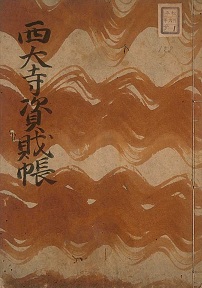 西大寺資財帳